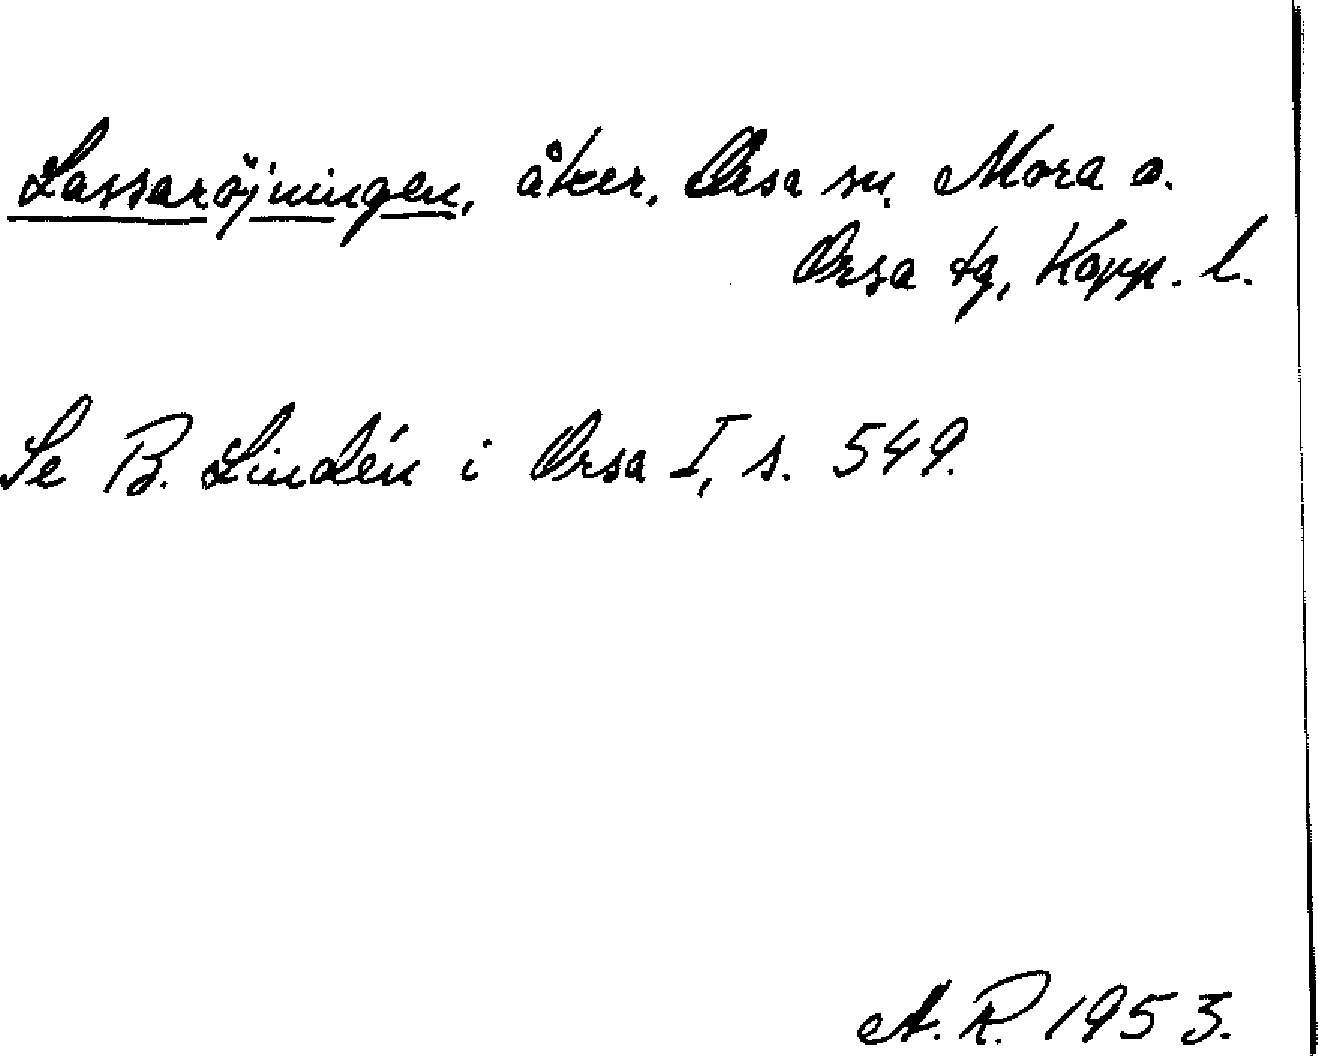 Lassaröjningen, åker, Orsa sn, Mora o.
Orsa tg, Kopp. l.
Se B. Lindén i Orsa I, s. 549.
A. R. 1953.